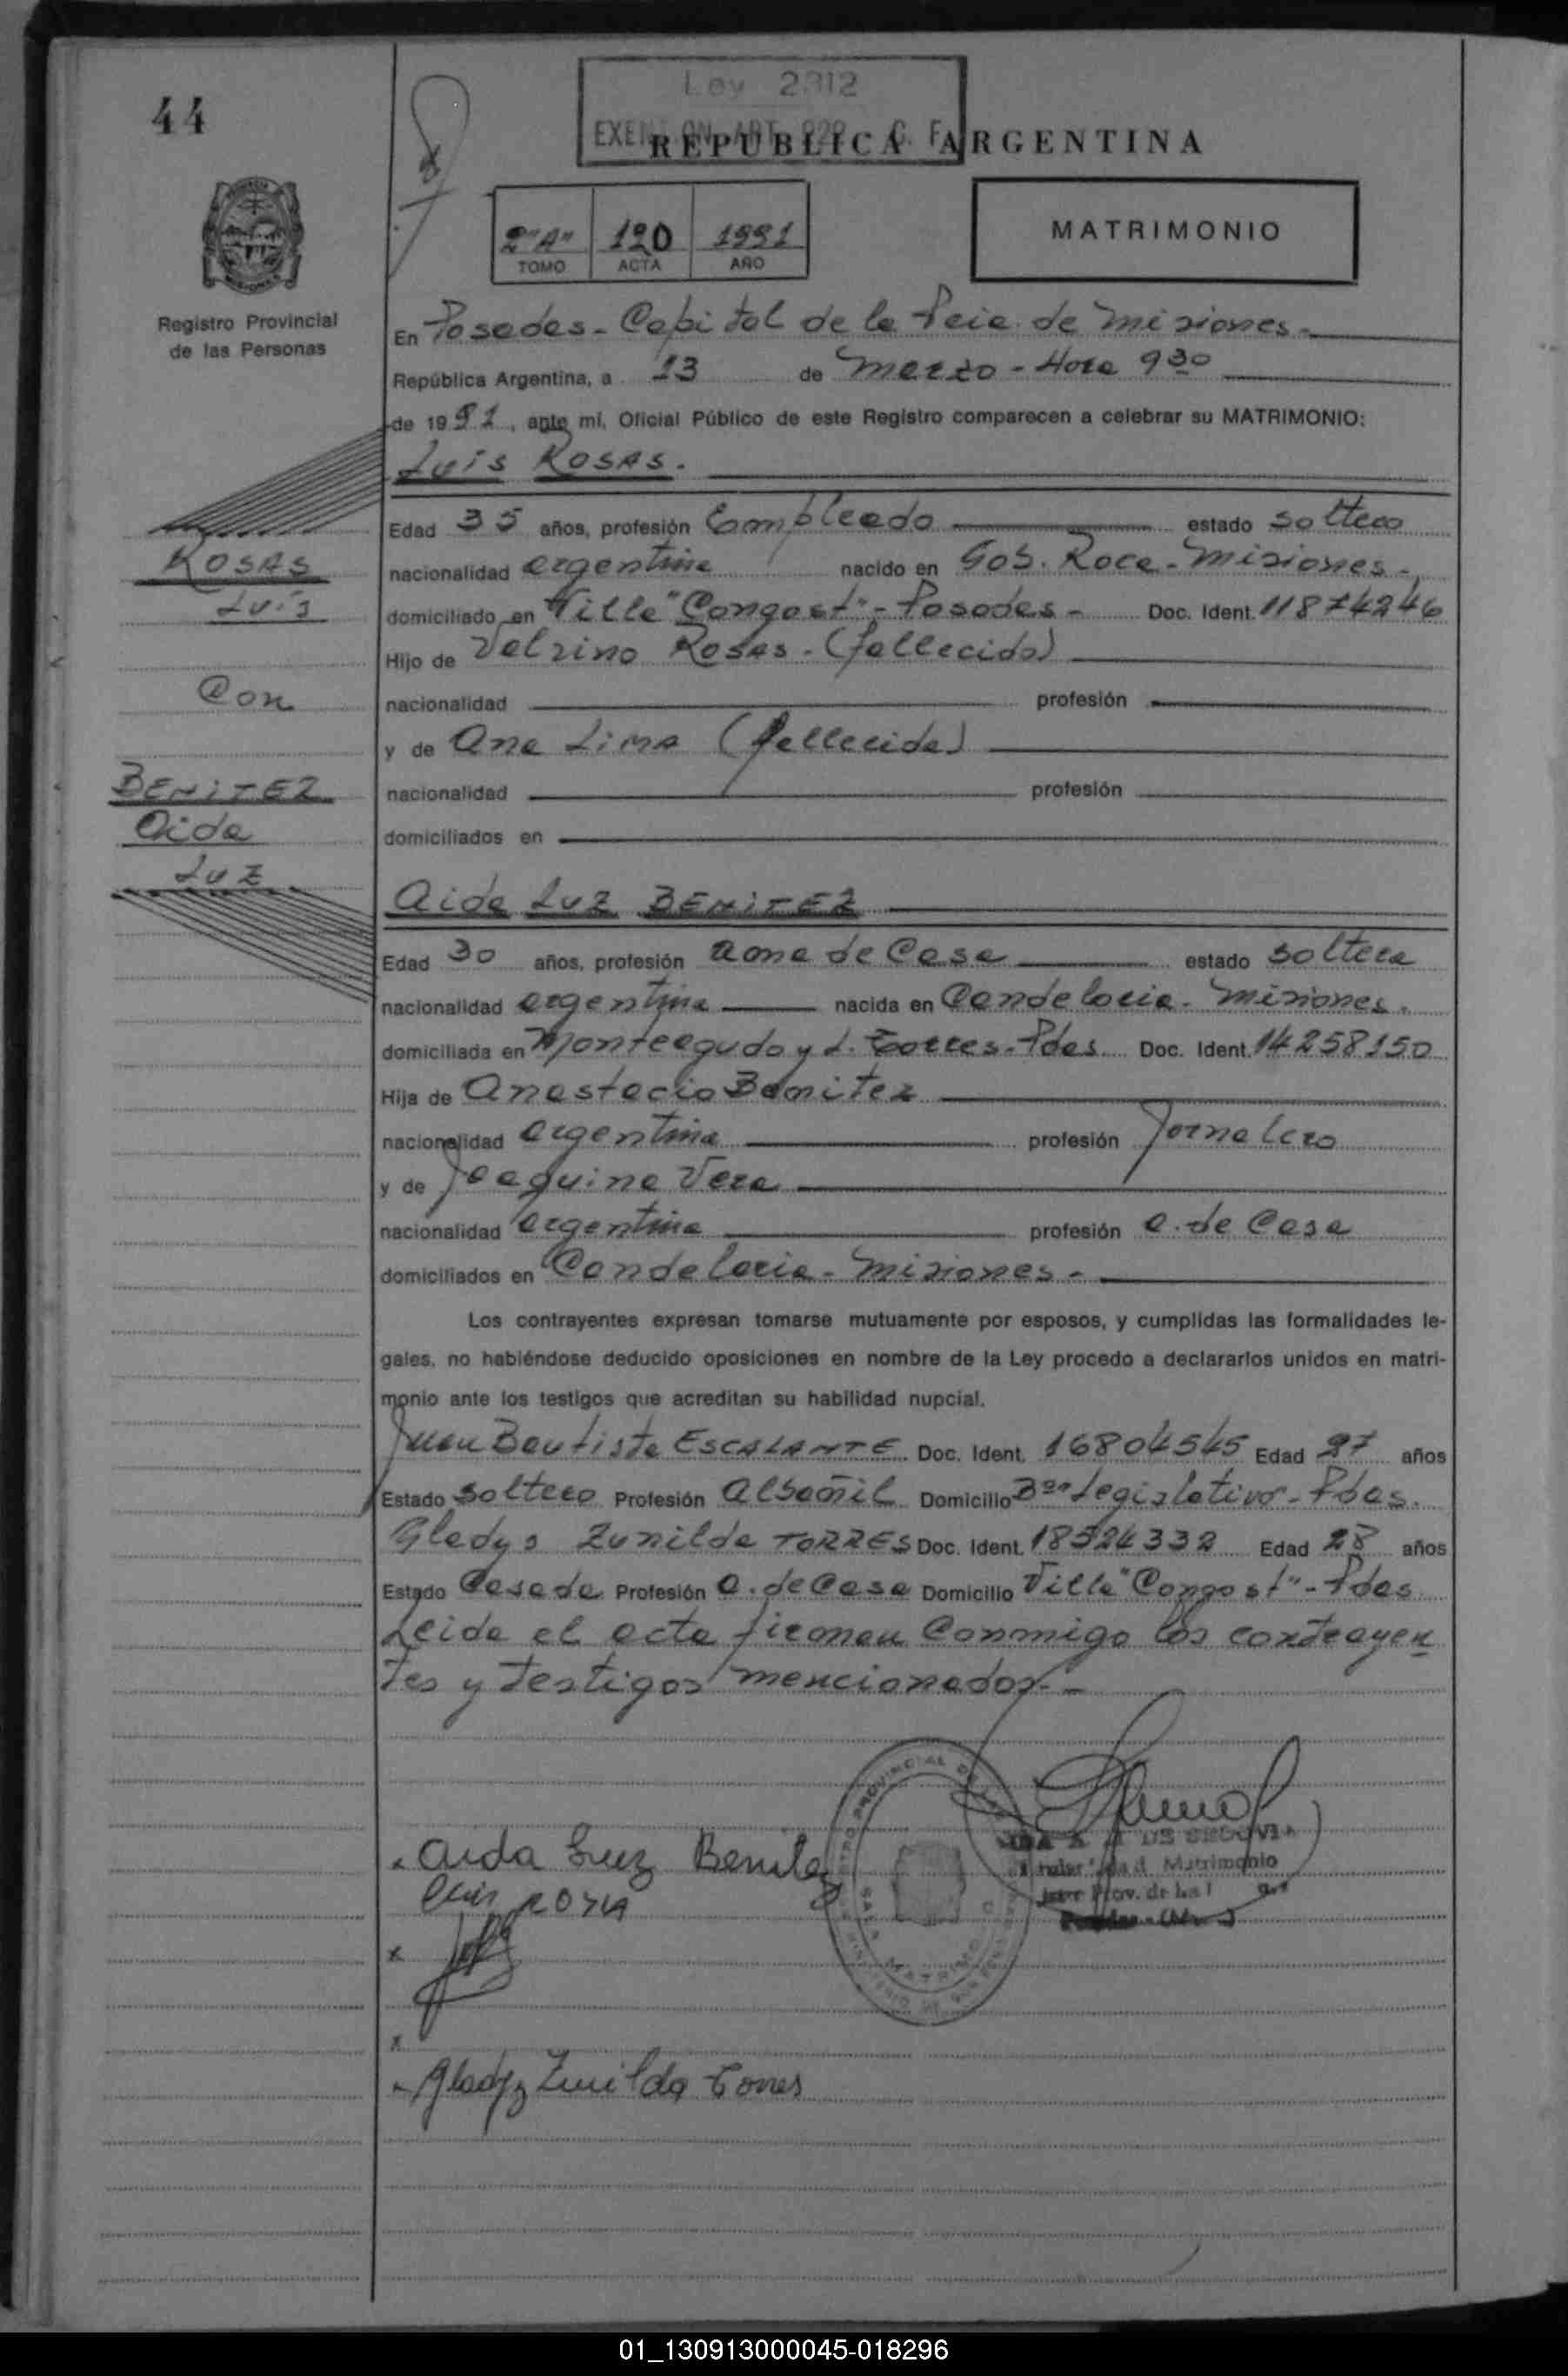 44
Ley 2312
REPUBLICA ARGENTINA
2"A" 120 1991
TOMO ACTA AÑO
MATRIMONIO
Registro Provincial
de las Personas
En Posadas - Capital de la Pcia. de Misiones -
República Argentina, a 13 de Marzo - Hora 9 30
de 1991, ante mí, Oficial Público de este Registro comparecen a celebrar su MATRIMONIO:
Luis ROSAS.
ROSAS
Luis
Con
BENITEZ
Aida
Luz
Edad 35 años, profesión Empleado estado soltero
nacionalidad argentina nacido en Gob. Roca - Misiones -
domiciliado en Villa "Congost" - Posadas - Doc. Ident. 11874246
Hijo de Velzino Rosas - (fallecido)
nacionalidad profesión
y de Ana Lima (fallecida)
nacionalidad profesión
domiciliados en
Aida Luz BENITEZ
Edad 30 años, profesión ama de Casa estado soltera
nacionalidad argentina nacida en Candelaria - Misiones.
domiciliada en Monteagudo y L. Torres - Pdas. Doc. Ident. 14258150
Hija de Anastacio Benitez
nacionalidad argentina profesión Jornalero
y de Joaquina Vera
nacionalidad argentina profesión a. de Casa
domiciliados en Candelaria - Misiones -
Los contrayentes expresan tomarse mutuamente por esposos, y cumplidas las formalidades le-
gales, no habiéndose deducido oposiciones en nombre de la Ley procedo a declararlos unidos en matri-
monio ante los testigos que acreditan su habilidad nupcial.
Juan Bautista ESCALANTE Doc. Ident. 16804545 Edad 27 años
Estado soltero Profesión Albañil Domicilio Bº Legislativo - Pdas.
Gladys Zunilda TORRES Doc. Ident. 18524332 Edad 28 años
Estado Casada Profesión a. de Casa Domicilio Villa "Congost" - Pdas
Leida el acta firman Conmigo los contrayen
tes y testigos mencionados -
Aida Luz Benitez
Luis ROSA
Gladyz Zunilda Torres
01_130913000045-018296